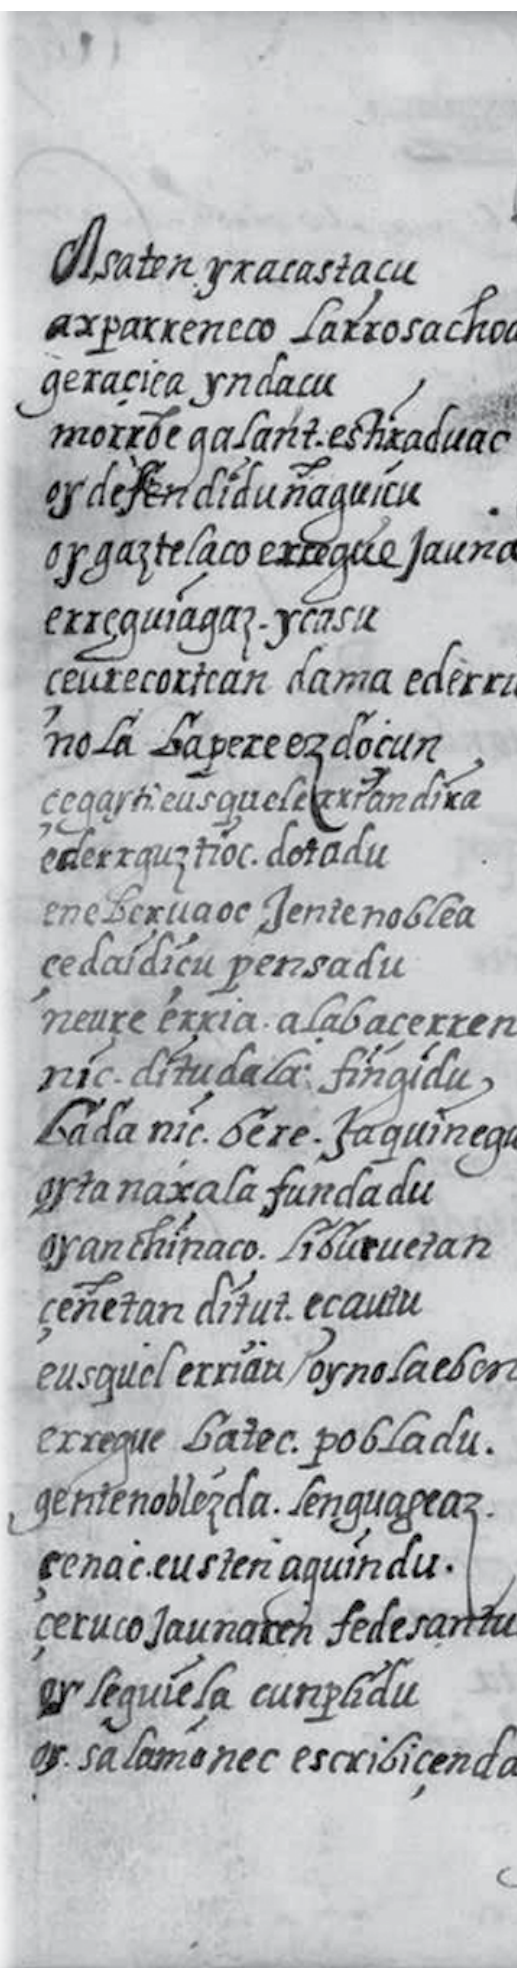 Asaten yracastacu
axparreneco Larrosachoa
geraçica yndacu
morroe galant. estiraduac
oy defendidu naguicu
oy gaztelaco erregue Jauna
erreguiagaz. ycasu
ceurecortean dama ederru
nola bapere ez docun
çegayti eusquel errian dira
ederr guztioc. dotadu
ene beruaoc Jentenoblea
çedaidicu pensadu
neure erria. alabacerren
nic. ditudala: fingidu
bada nic. bere. Jaquinegu
oyta naxala fundadu
oyanchinaco. liburuetan
çeñetan ditut. ecautu
eusquel errian / oynolaeben
erregue batec. pobladu.
gentenoblezda. lenguageaz.
çenaic. eusten aguindu.
çeruco Jaunaren fedesantu
oy leguiela cunplidu
oy. salamonec escribicenda